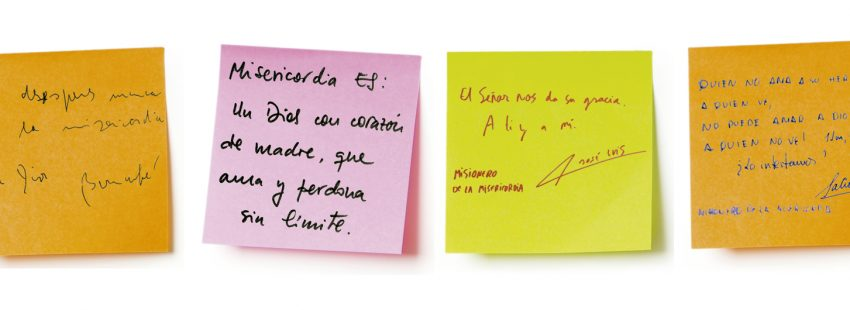 después nunca
la misericordia
Dios Bernabé
Misericordia ES:
Un Dios con corazón
de madre, que
ama y perdona
sin límite.
El Señor nos da su gracia.
A ti y a mí.
José Luis
MISIONERO
DE LA MISERICORDIA
QUIEN NO AMA A SU HER
A QUIEN VE,
NO PUEDE AMAR A DIO
A QUIEN NO VE!
¿Lo intentamos?